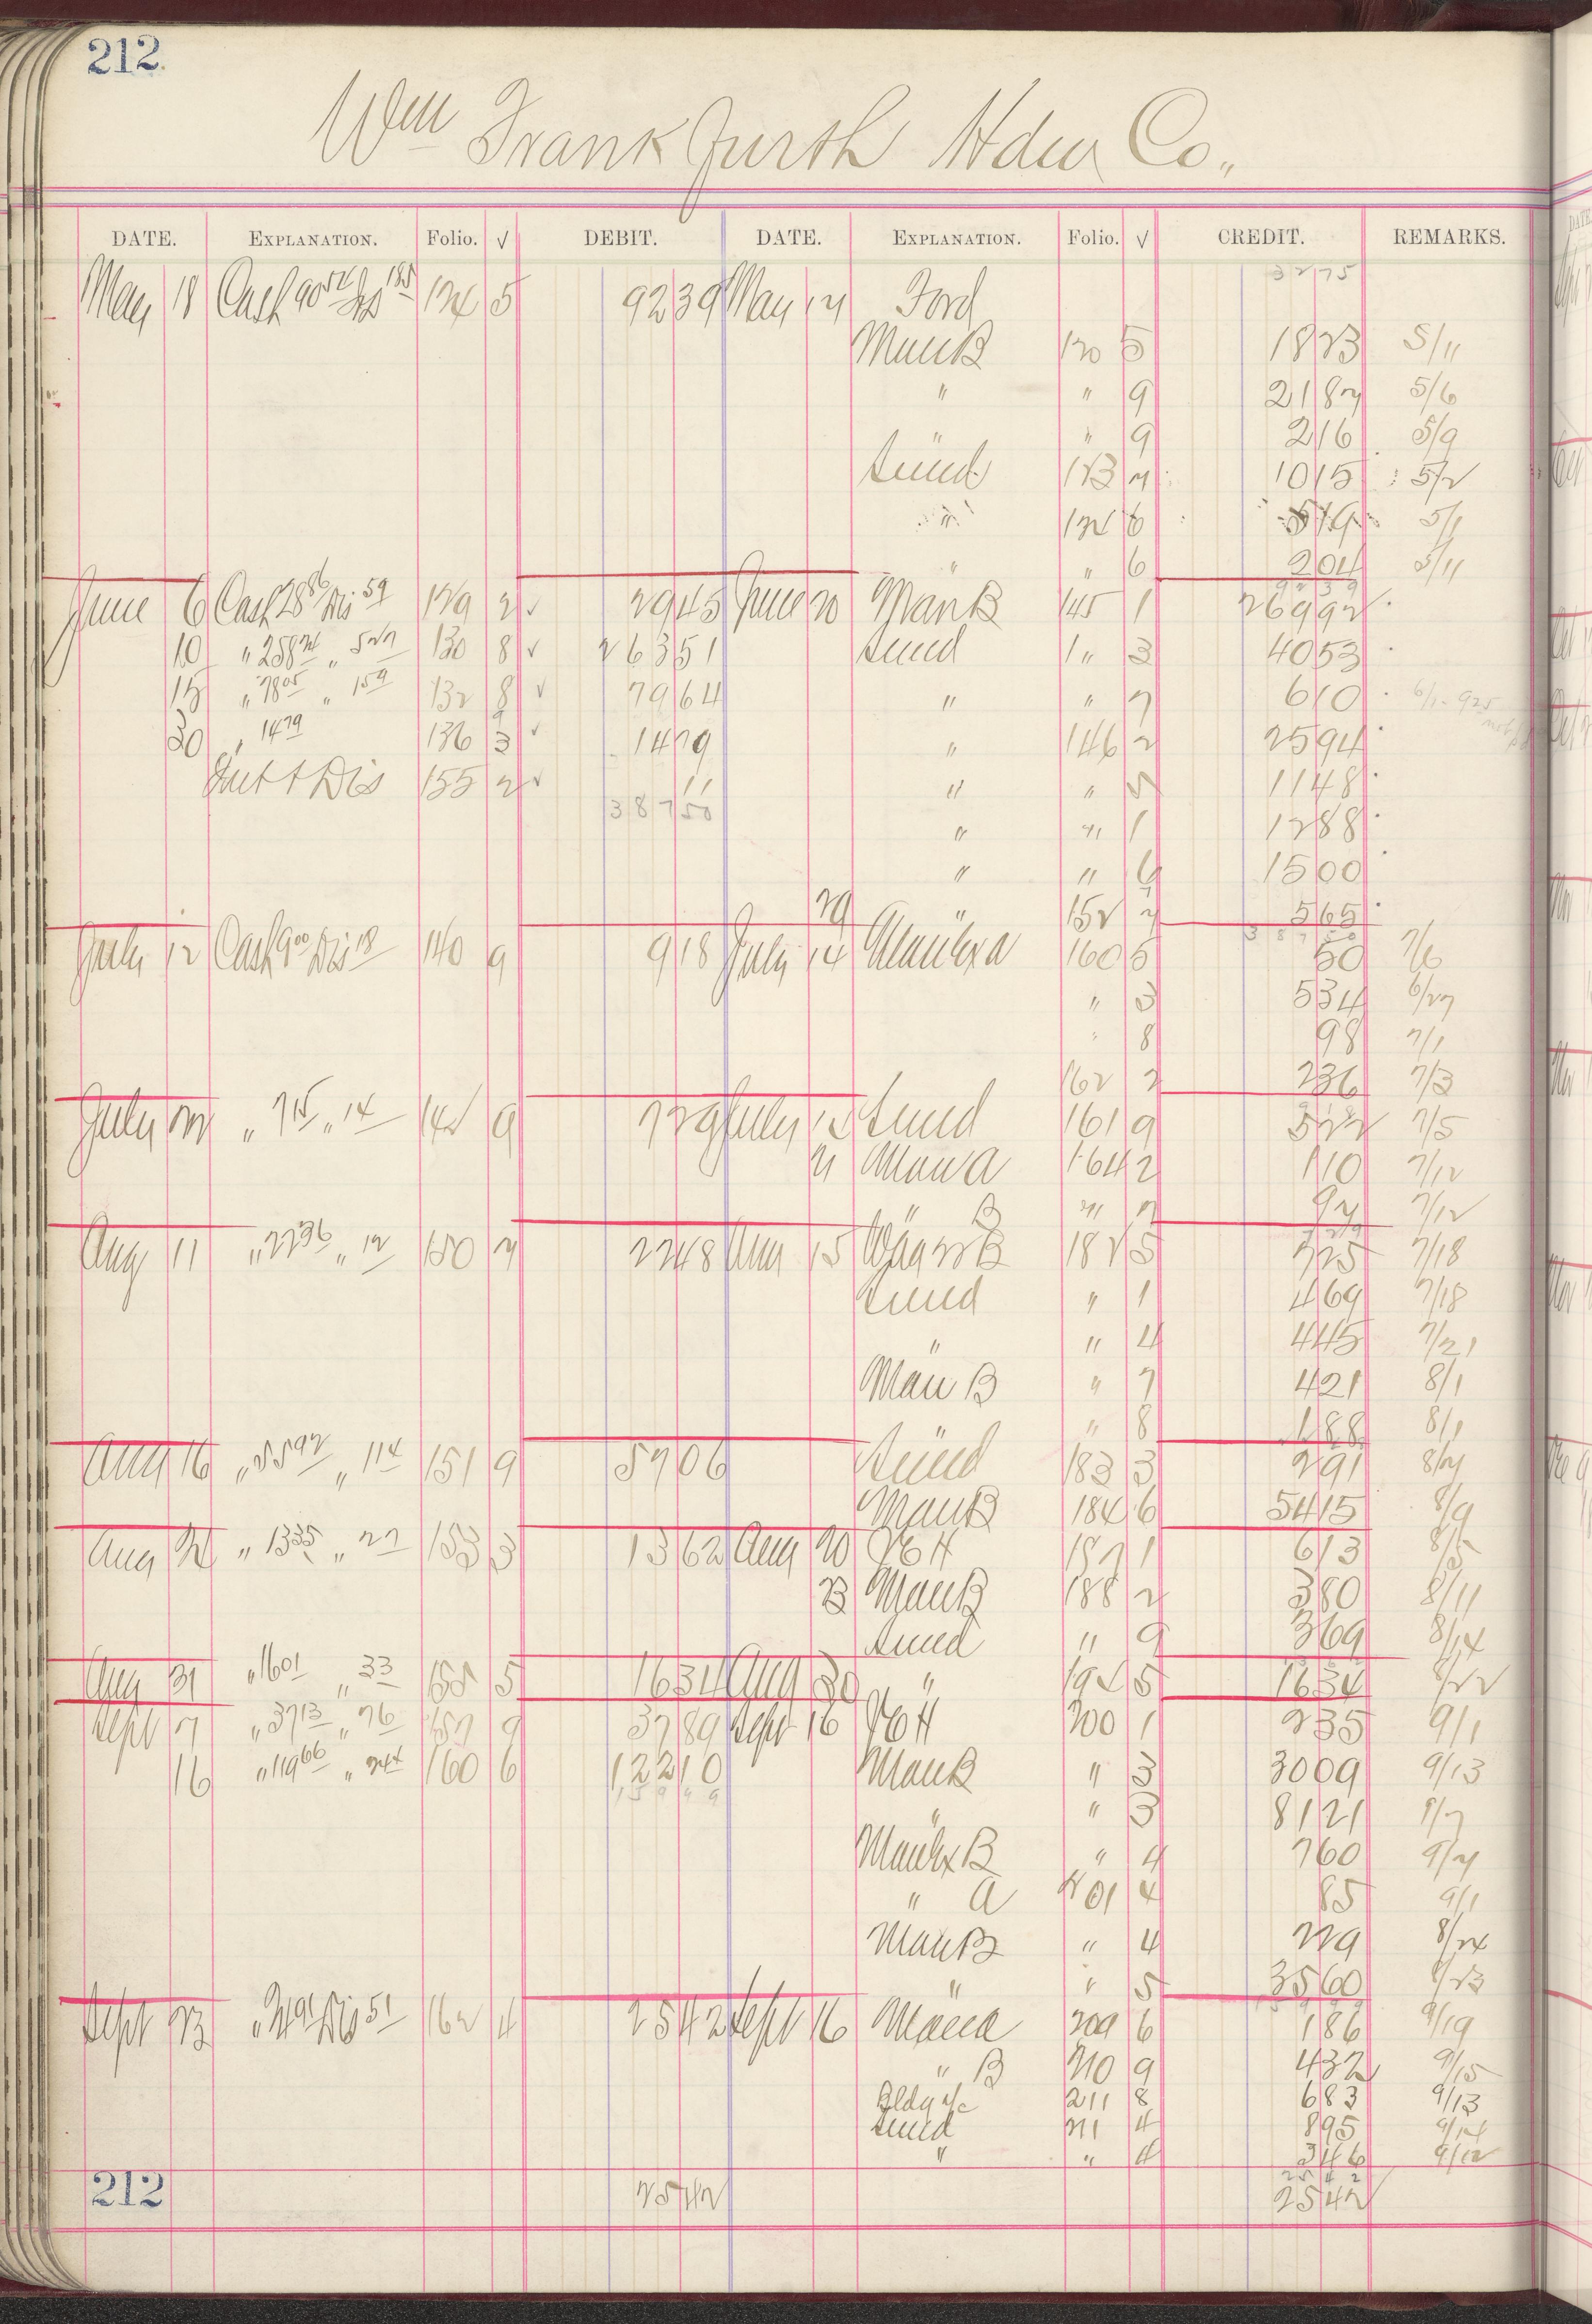 212
Wm Frankfurth Hdw Co.
DATE. EXPLANATION. Folio. √ DEBIT. DATE. EXPLANATION. Folio. √ CREDIT. REMARKS.
32 75
May 18 Cash 90 54 Dis 1 85 124 5 92 39 May 21 Ford
Man B 120 5 18 23 5/11
" " 9 21 87 5/6
" " 9 2 16 5/9
Sund 123 7 10 15 5/2
" 124 6 5 19 5/1
" " 6 2 04 5/11
June 6 Cash 28 86 Dis 59 129 2 √ 29 45 June 20 Man B 145 1 269 92
10 " 258 24 " 5 27 130 8 √ 263 51 Sund 1" 3 40 53
15 " 78 05 " 1 59 132 8 √ 79 64 " " 7 6 10
30 " 14 79 136 3 √ 14 79 " 146 2 25 94
Int & Dis 155 2 √ 11 " " 5 11 48
387 50
" " 1 12 88
" " 6 15 00
29 " 152 5 65
July 12 Cash 9 00 Dis 18 140 9 9 18 July 14 Maulx a 160 5 50 7/6
" 3 5 34 6/27
" 8 98 7/1
162 2 2 36 7/3
July 22 " 7 15 " 14 142 9 7 29 July 15 Sund 161 9 5 22 7/5
21 Man a 164 2 1 10 7/12
" B " 7 97 7/12
Aug 11 " 22 36 " 12 150 7 22 48 Aug 15 B 182 5 7 25 7/18
Sund " 1 4 69 7/18
" " 4 4 45 7/21
Man B " 7 4 21 8/1
" 8 1 88 8/1
Aug 16 " 55 92 " 1 14 151 9 57 06 Sund 183 3 2 91 8/4
Man B 184 6 54 15 8/9
Aug 24 " 13 35 " 27 153 3 13 62 Aug 20 187 1 6 13
23 Man B 188 2 3 80 8/11
Sund " 9 3 69 8/14
Aug 31 " 16 01 " 33 155 5 16 34 Aug 30 " 194 5 16 34 8/22
Sept 7 " 37 13 " 76 157 9 37 89 Sept 16 200 1 2 35 9/1
16 " 119 66 " 2 44 160 6 122 10 Man B " 3 30 09 9/13
15 9 9 9
" " 3 81 21 9/7
Maulx B " 4 7 60 9/7
" a 201 4 85 9/1
Man B " 4 2 29 8/24
" " 5 35 60 8/23
Sept 23 " 24 91 Dis 51 162 4 25 42 Sept 16 Man a 209 6 1 86 9/19
" B 210 9 4 32 9/15
Bldg a/c 211 8 6 83 9/13
Sund 211 4 8 95 9/14
" " 4 3 46 9/12
25 42
212 25 42 25 42